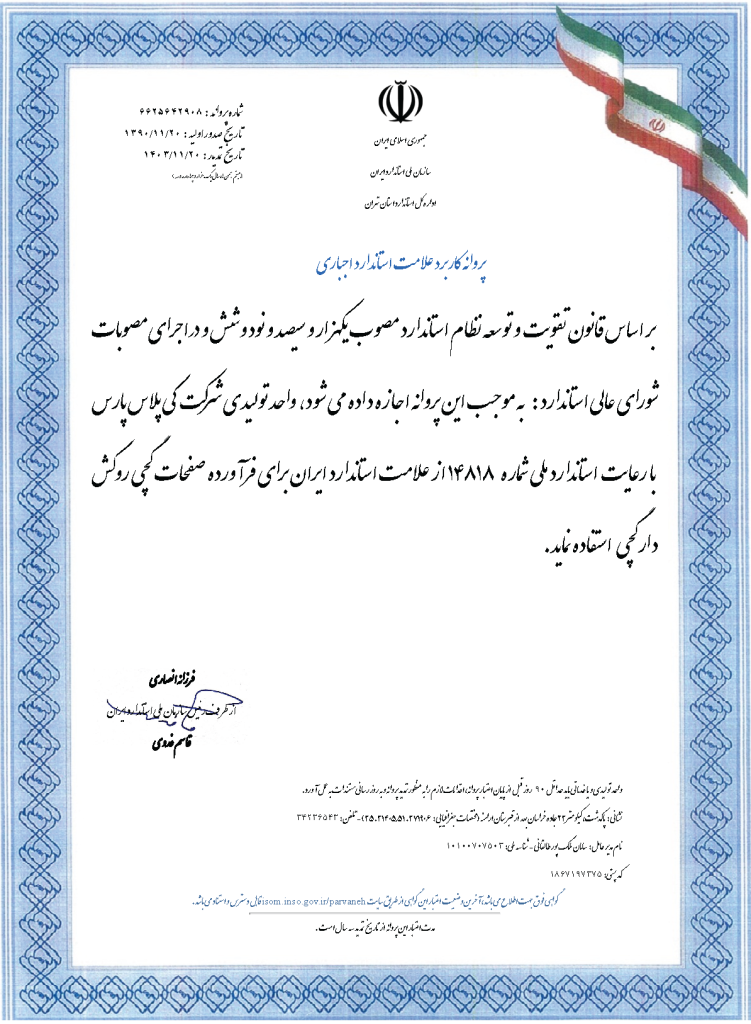 شماره پروانه : ۶۶۲۵۶۴۲۹۰۸
تاریخ صدور اولیه : ۱۳۹۰/۱۱/۲۰
تاریخ تمدید : ۱۴۰۳/۱۱/۲۰
جمهوری اسلامی ایران
سازمان ملی استاندارد ایران
اداره کل استاندارد استان تهران
پروانه کاربرد علامت استاندارد اجباری
بر اساس قانون تقویت و توسعه نظام استاندارد مصوب یکهزار و سیصد و نود و شش و در اجرای مصوبات
شورای عالی استاندارد : به موجب این پروانه اجازه داده می شود، واحد تولیدی شرکت کی پلاس پارس
با رعایت استاندارد ملی شماره ۱۴۸۱۸ از علامت استاندارد ایران برای فرآورده صفحات گچی روکش
دار گچی استفاده نماید.
فرزانه انصاری
از طرف رئیس سازمان ملی استاندارد ایران
قاسم
واحد تولیدی و یا خدماتی باید حداقل ۹۰ روز قبل از پایان اعتبار پروانه، اقدامات لازم را به منظور تمدید پروانه و به روز رسانی مستندات به عمل آورد.
نشانی: پاکدشت، کیلومتر ۲۲ جاده خراسان بعد از قبرستان ارامنه (مختصات جغرافیایی: ۳۵.۳۱۴۰۵,۵۱.۲۷۹۹۰۶) - تلفن: ۳۴۲۳۶۵۴۳
نام مدیر عامل: سامان ملک پور طالقانی - شناسه ملی: ۱۰۱۰۰۷۰۷۵۰۳
کد پستی: ۱۸۶۷۱۹۷۳۷۵
گواهی فوق جهت اطلاع می باشد، آخرین وضعیت اعتبار این گواهی از طریق سایت isom.inso.gov.ir/parvaneh قابل دسترس و استناد می باشد.
مدت اعتبار این پروانه از تاریخ تمدید سه سال است.